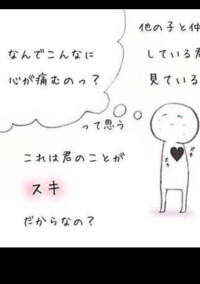 他の子と仲
している君
見ている
なんでこんなに
心が痛むのっ？
って思う
これは君のことが
スキ
だからなの？